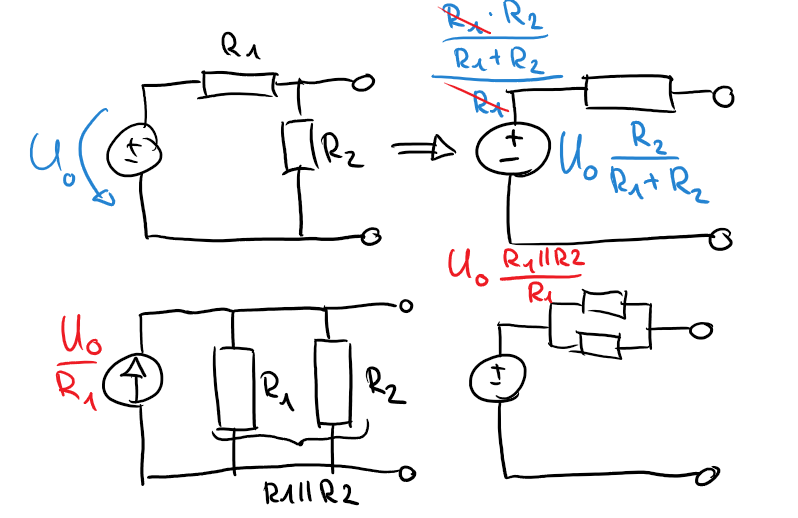 R1
U0
R2
R1 · R2
R1 + R2
R1
U0 R2
R1 + R2
U0 R1||R2
R1
U0
R1
R1
R2
R1||R2